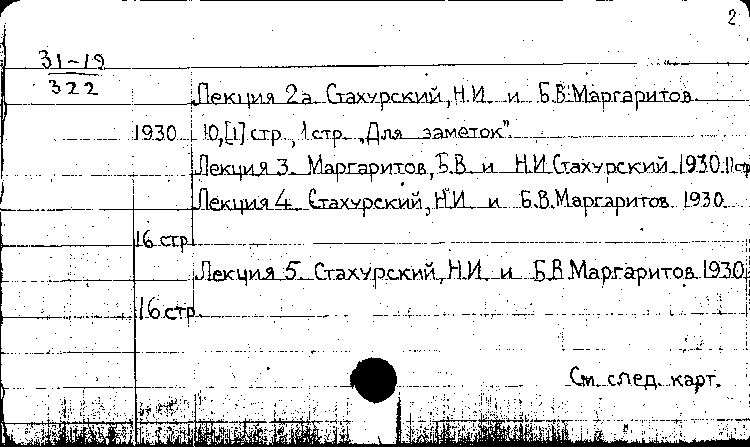 2
31-19
322
Лекция 2а. Стахурский, Н.И. и Б.В. Маргаритов.
1930 10,[1] стр., 1 стр. „Для заметок".
Лекция 3. Маргаритов, Б.В. и Н.И. Стахурский. 1930. 11 стр
Лекция 4. Стахурский, Н.И. и Б.В. Маргаритов. 1930.
16 стр.
Лекция 5. Стахурский, Н.И. и Б.В. Маргаритов. 1930.
16 стр.
См. след. карт.